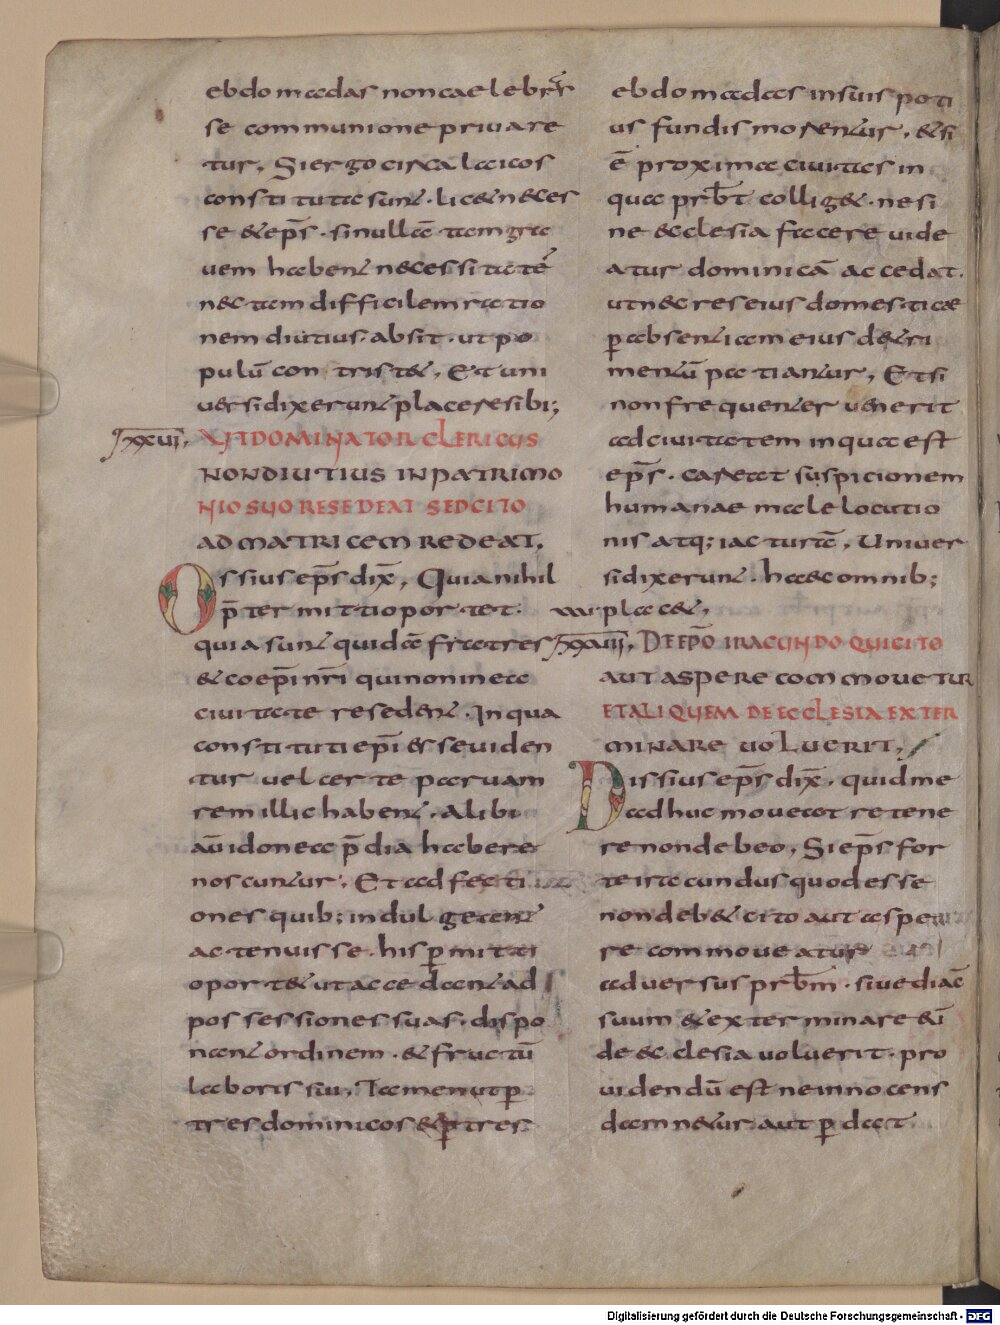 ebdomadas non caelebrr&
se communione priuare
tur, Si ergo circa laicos
constituta sunt. lic& neces
se & ep̄s. si nullā tam gra
uem habent necessitatē
nec tam difficilem ratio
nem diutius. absit. ut po
pulū contrist&, Et uni
uersi dixerunt placere sibi;
xxvi. UT DOMINATOR CLERICUS
NON DIUTIUS IN PATRIMO
NIO SUO RESEDEAT SED CITO
AD MATRICEM REDEAT.
Ossius ep̄s dix̄, Quia nihil
p̄termitti oportet.
quia sunt quidā fratres
& coep̄i nr̄i qui non in ea
ciuitate resedent. In qua
constituti ep̄i esse uiden
tur uel certe paruam
rem illic habent. Alibi
aūt idonea p̄dia habere
noscuntur, Et adfecti
ones quib; indulgeant
ac tenuisse. his ꝑmitti
oport& ut accedant ad
possessiones suas. dispo
nant ordinem. & fructū
laboris sui, Tamen ut ꝑ
tres dominicos & ꝑ tres
ebdomadas in suis poti
us fundis morentur, & si
ē proxima ciuitas in
qua prb̄t collig&. ne si
ne ecclesia facere uide
atur dominicā accedat.
ut nec res eius domesticae
ꝑ absentiam eius d&ri
mentū patiantur, Et si
non frequenter uenerit
ad ciuitatem in qua est
ep̄s. careat suspicionem
humanae male locutio
nis atq; iacturā, Uniuer
si dixerunt. haec omnib;
plac&,
xxvii, DE EP̄O IRACUNDO QUI CITO
AUT ASPERE COMMOUETUR
ET ALIQUEM DE ECCLESIA EXTER
MINARE UOLUERIT,
Ossius ep̄s dix̄. quid me
adhuc moueat retene
re non debeo, Si ep̄s for
te iracundus quod esse
non deb& cito aut aspe
re commoueatur
aduersus prb̄m. siue diac̄
suum & exterminare eū
de ecclesia uoluerit. pro
uidendū est ne innocens
damn&ur aut ꝑdat
Digitalisierung gefördert durch die Deutsche Forschungsgemeinschaft - DFG